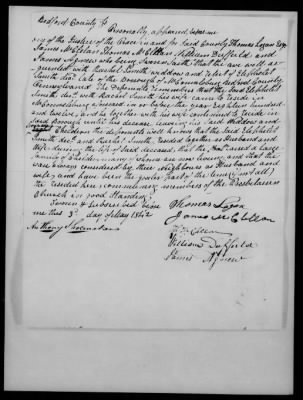 Bedford County Ss
Personally appeared before me
any of the Justices of the Peace in and for Said County Thomas Logan Esqr
James McClelan Thomas McClellan William Duffield and
James Agnew who being Sworn Saith that the are well ac
quainted with Rachel Smith widdow and relict of Eliphelet
Smith decd late of the Borough of McConnelsburg Bedford County
Pennsylvania The deponents remembers that the Said Eliphelet
Smith decd with Rachel Smith his wife came to reside in
McConnelsburg aforesaid in or before the year eighteen hundred
and twelve, and he together with his wife continued to reside in
Said Borough until his decease leaving his Said Widdow and
Children the deponents well knows that the Said Eliphelet
Smith decd and Rachel Smith resided together as Husband and
Wife during the life of Said deceased, that the had raised a large
family of children many of whom are now living and that the
was always considered by their neighbours as Husband and
wife, and have been the greater part of the time (if not all)
the resided here communing members of the Presbyterian
Church in good Standing
Sworn & subscribed before
me this 3d day of May 1842
Thomas Logan
James McClellan
Anthony Shoemaker
Wm McClellan
William Duffield
James Agnew